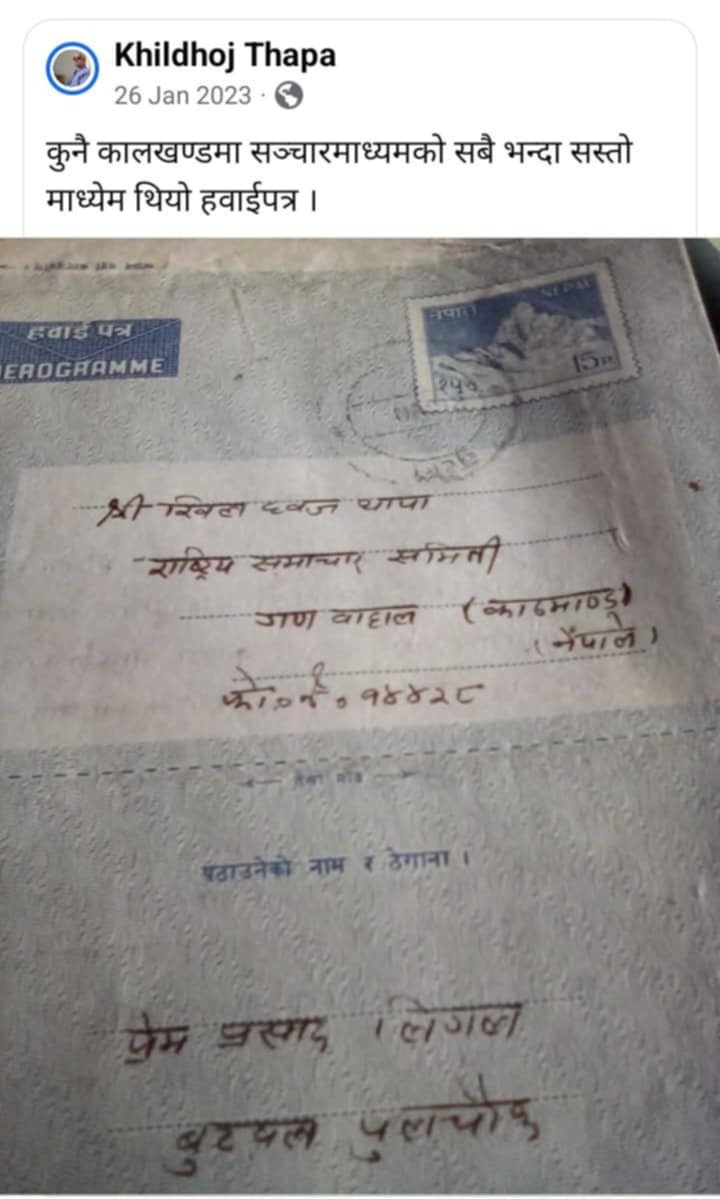 Khildhoj Thapa
26 Jan 2023
कुनै कालखण्डमा सञ्चारमाध्यमको सबै भन्दा सस्तो
माध्येम थियो हवाईपत्र ।
हवाई पत्र
EROGRAMME
नेपाल NEPAL
15P
श्री खिल ध्वज थापा
राष्ट्रिय समाचार समिती
गण वाहाल (काठमाण्डू)
(नेंपाल)
फो.नं. १४४२८
पठाउनेको नाम र ठेगाना ।
प्रेम प्रसाद लिगल
बुटवल पुलचौक